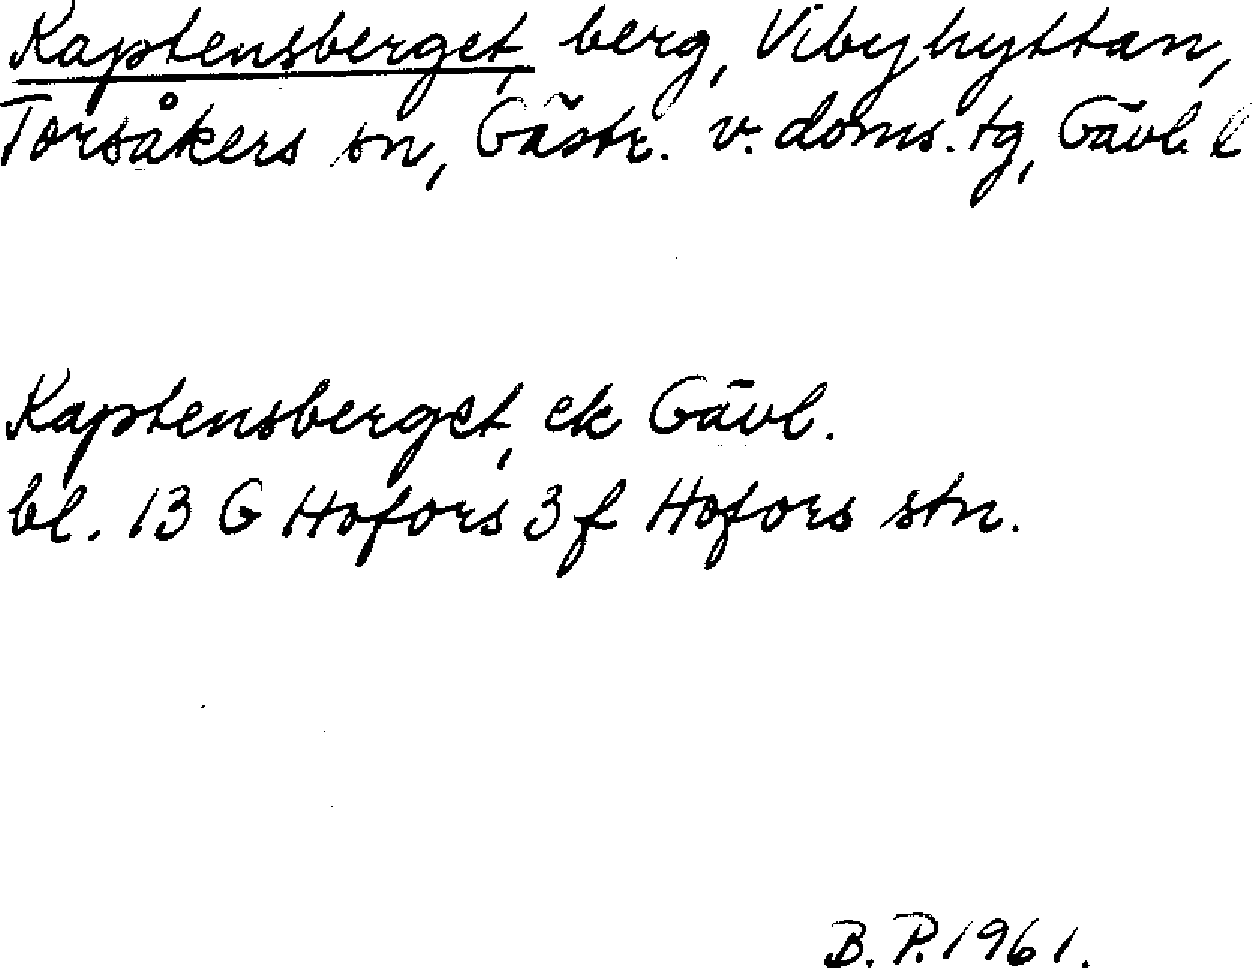 Kaptensberget, berg, Vibyhyttan,
Torsåkers sn, Gästr. v. doms. tg, Gävl. l
Kaptensberget, ek Gävl.
bl. 13 G Hofors 3 f Hofors stn.
B. P. 1961.